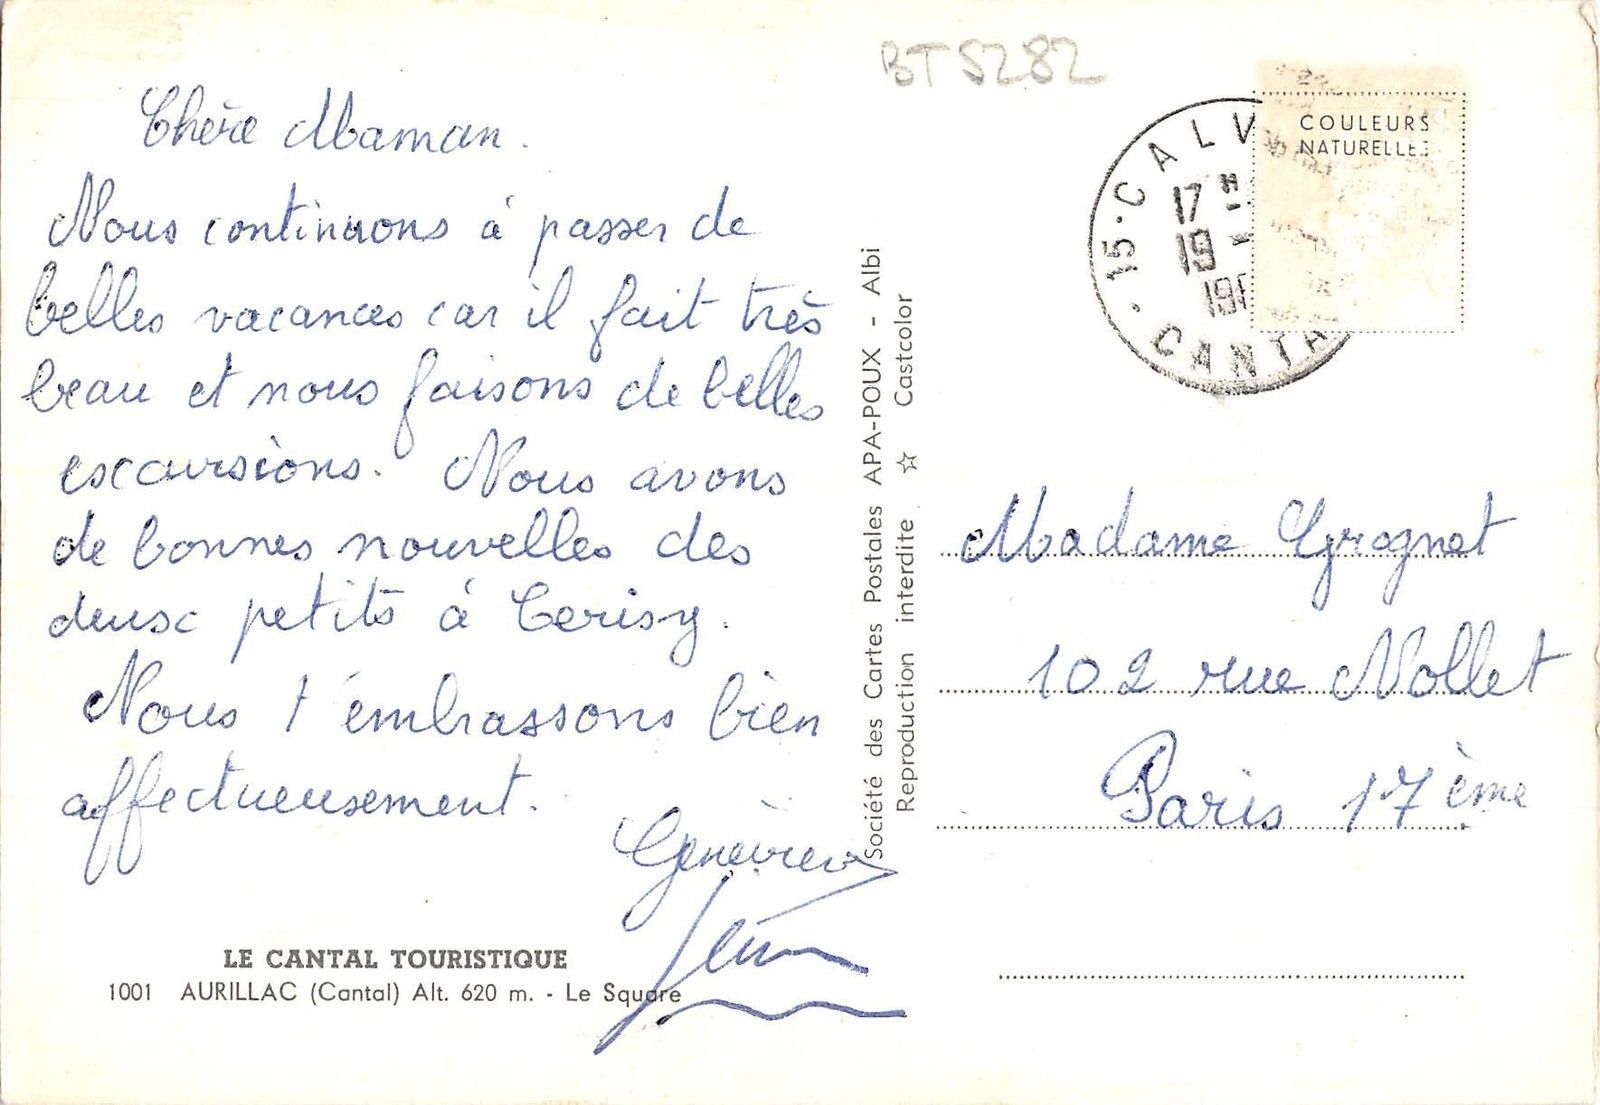 BT5282
Chère Maman.
Nous continuons à passer de
belles vacances car il fait très
beau et nous faisons de belles
excursions. Nous avons
de bonnes nouvelles des
deux petits à Cerisy.
Nous t'embrassons bien
affectueusement.
LE CANTAL TOURISTIQUE
1001 AURILLAC (Cantal) Alt. 620 m. - Le Square
Société des Cartes Postales APA-POUX - Albi
Reproduction interdite ☆ Castcolor
15·CALV
17 H
19
CANTA
COULEURS
NATURELLES
Madame Grognet
102 rue Nollet
Paris 17ème